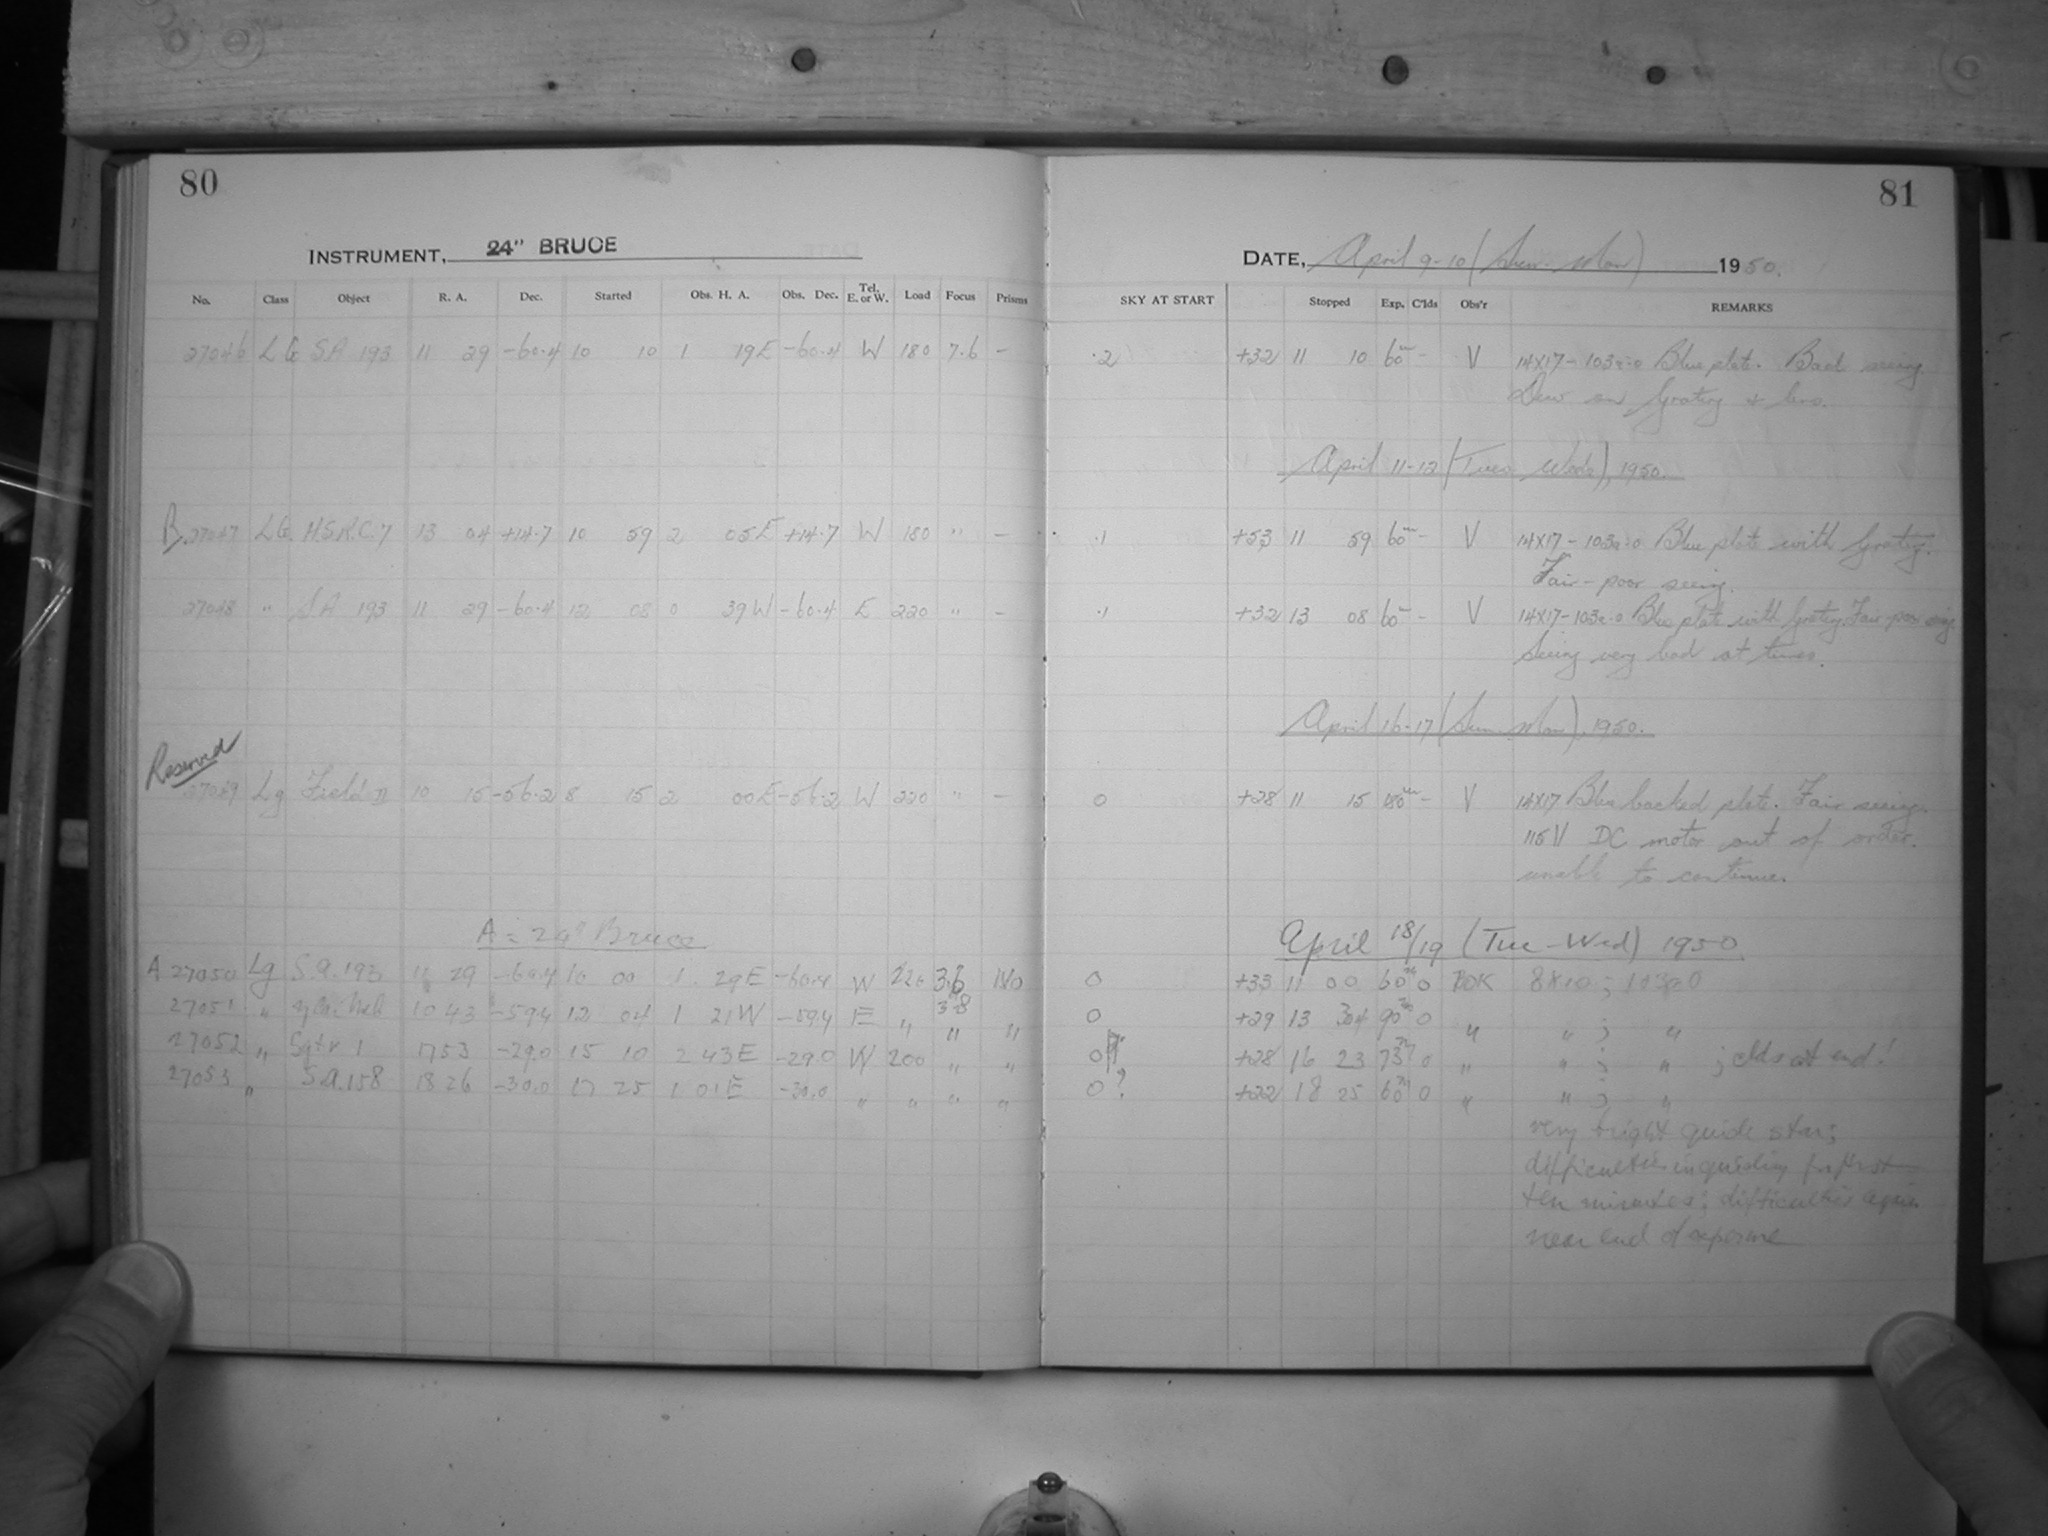 80
INSTRUMENT, 24" BRUCE
No. Class Object R. A. Dec. Started Obs. H. A. Obs. Dec. Tel. E. or W. Load Focus Prisms
27046 LG SA 193 11 29 -60.4 10 10 1 19E -60.4 W 180 7.6 -
B. 27047 LG H.S.R.C.7 13 04 +14.7 10 59 2 05E +14.7 W 180 " -
27048 " SA 193 11 29 -60.4 12 08 0 39W -60.4 E 220 " -
Reserved
27049 Lg Field II 10 15 -56.2 8 15 2 00E -56.2 W 220 " -
A = 24" Bruce
A 27050 Lg S.A.193 11 29 -60.4 10 00 1 29E -60.4 W 220 3.6 No
3.8
27051 " 10 43 -59.4 12 04 1 21W -59.4 E " " "
27052 " Sgtr 1 17 53 -29.0 15 10 2 43E -29.0 W 200 " "
27053 " S.A.158 18 26 -30.0 17 25 1 01E -30.0 " " " "
81
DATE, April 9-10 (Sun-Mon) 1950.
SKY AT START Stopped Exp. C'lds Obs'r REMARKS
.2 +32 11 10 60m - V 14X17-103a-0 Blue plate. Bad seeing
Dew on Grating & lens.
April 11-12 (Tues-Weds), 1950.
.1 +53 11 59 60m - V 14X17-103a-0 Blue plate with Grating.
Fair-poor seeing.
.1 +32 13 08 60m - V 14X17-103a-0 Blue plate with Grating. Fair poor seeing
Seeing very bad at times.
April 16-17 (Sun-Mon), 1950.
0 +28 11 15 180m - V 14X17 Blue backed plate. Fair seeing.
115V DC motor out of order.
unable to continue.
April 18/19 (Tue-Wed) 1950
0 +33 11 00 60m 0 BOK 8x10; 103a0
0 +29 13 34 90m 0 " "; "
0 +28 16 23 73m 0 " "; "; clds at end!
0? +22 18 25 60m 0 " "; "
very bright guide star;
difficulties in guiding for first
ten minutes; difficulties again
near end of exposure